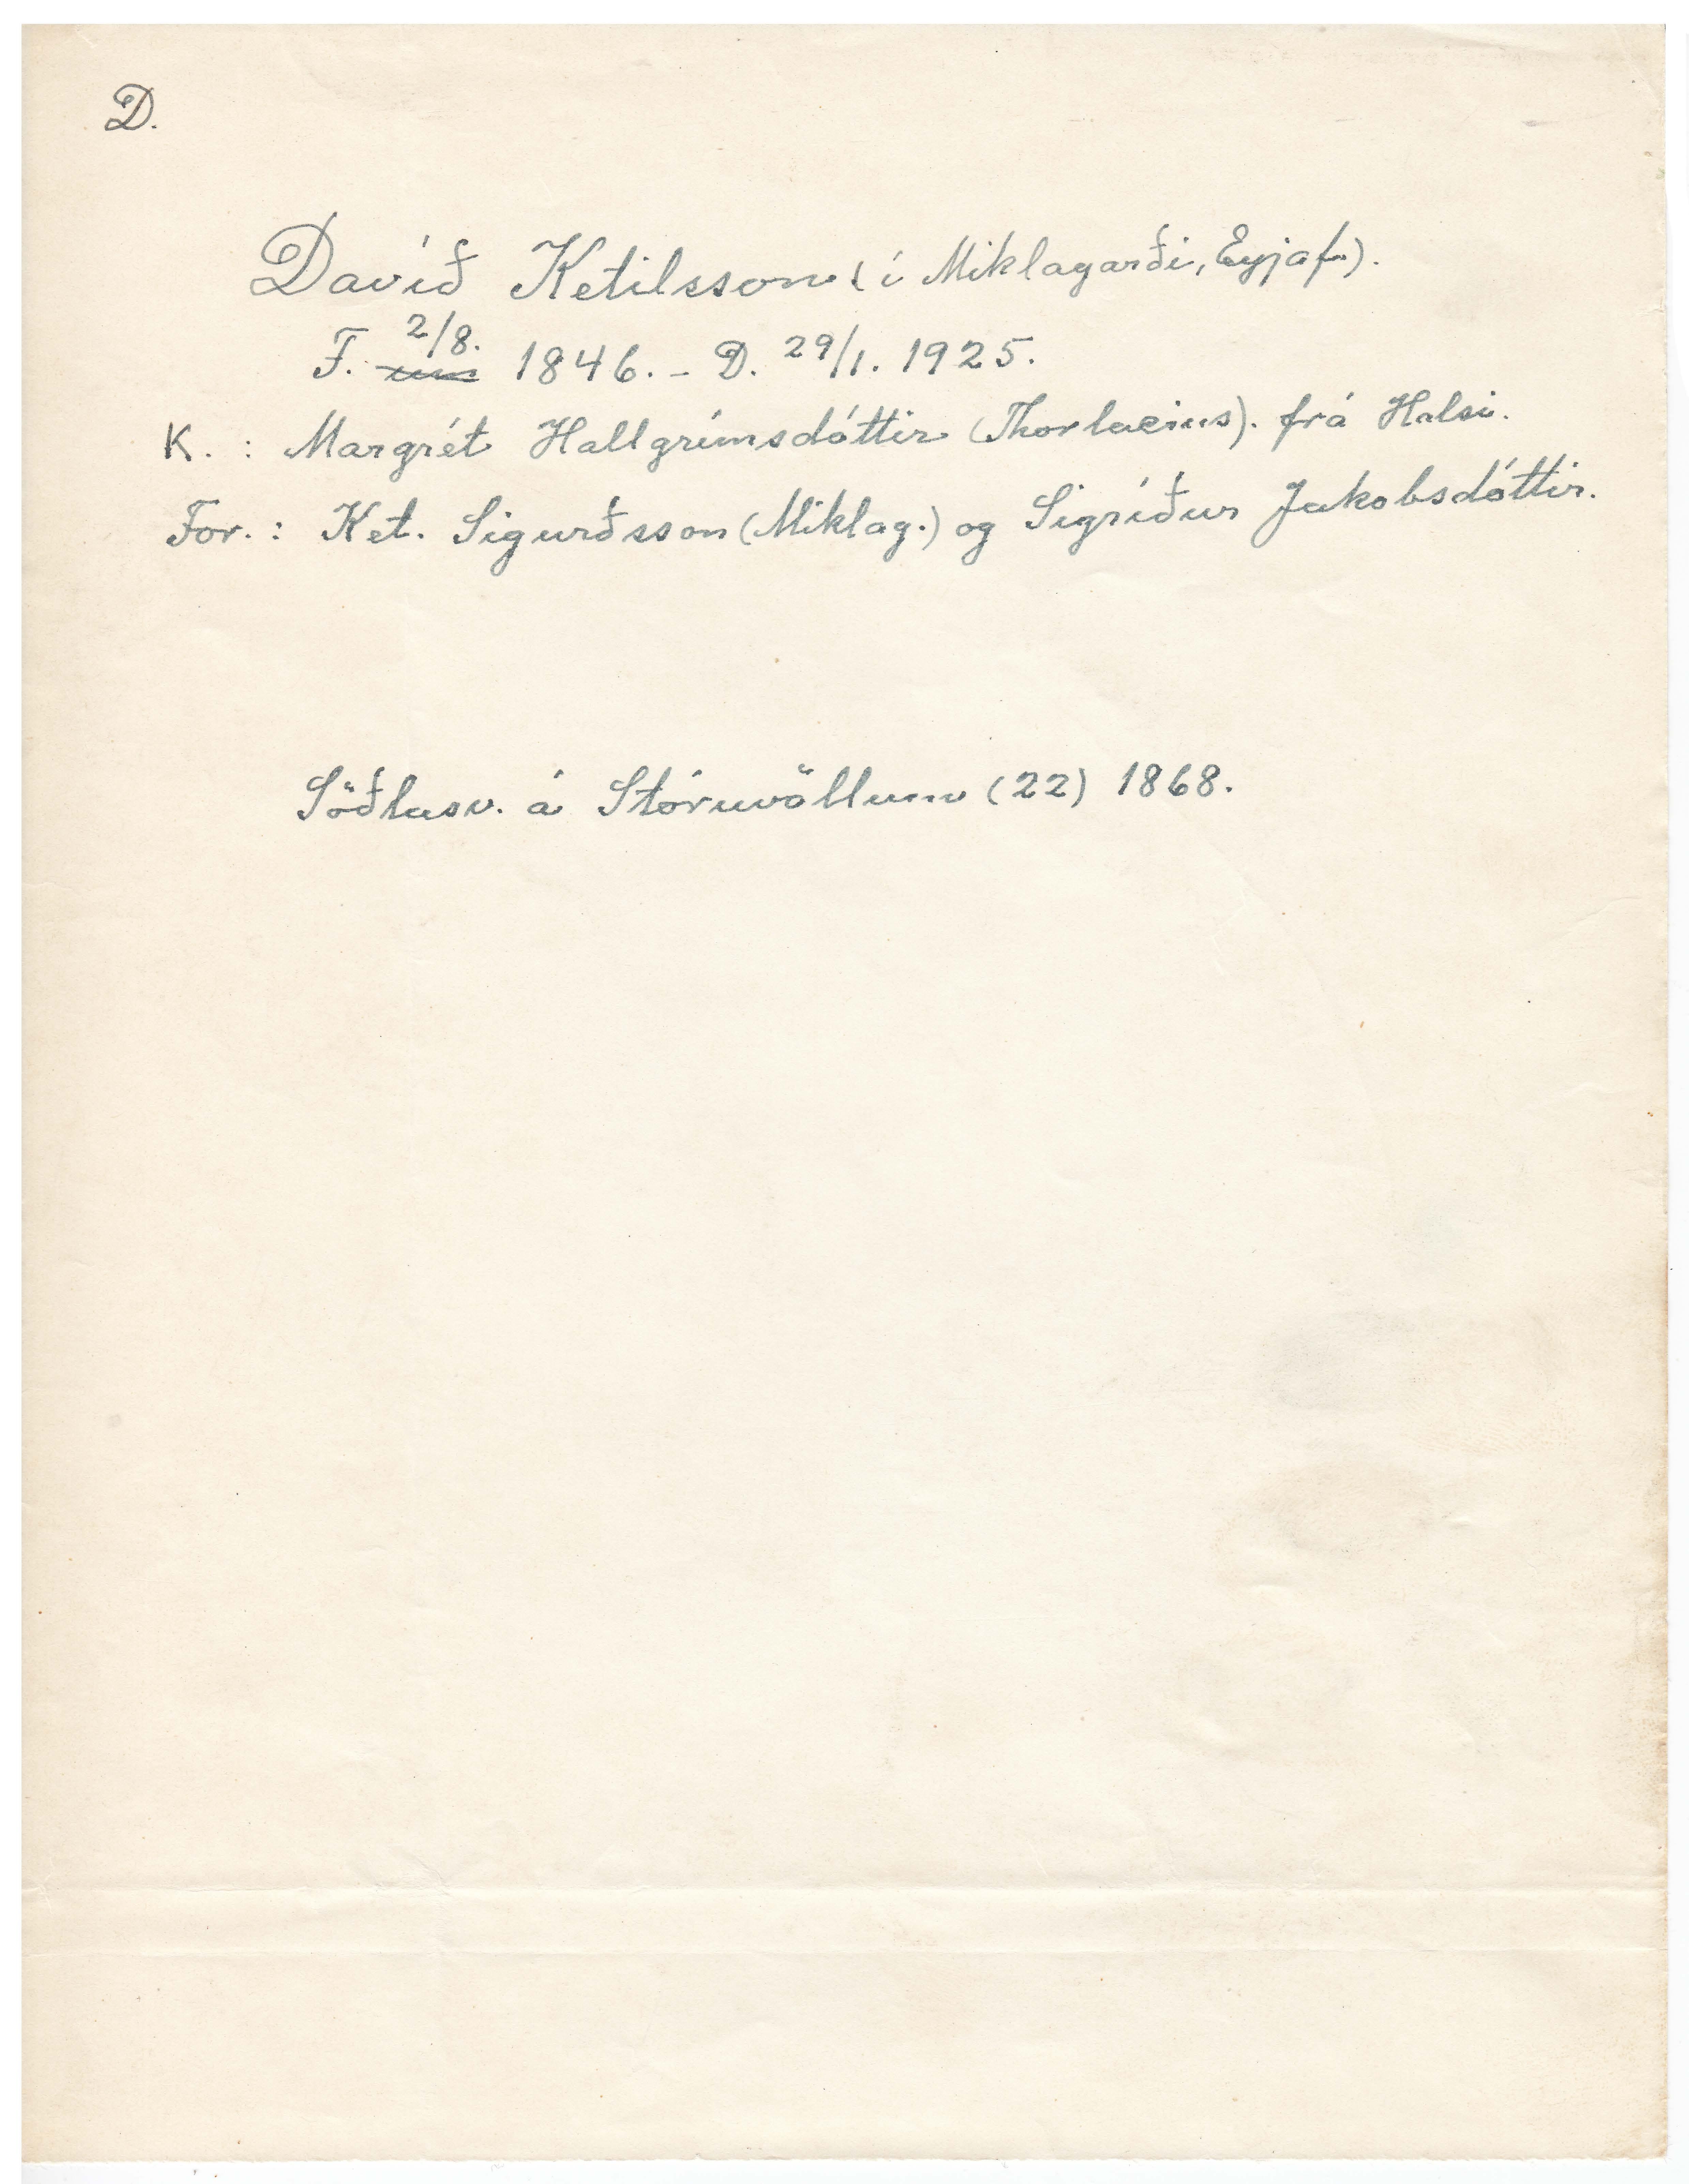 D.
Davíð Ketilsson (í Miklagarði, Eyjaf.).
F. 2/8. 1846. - D. 29/1. 1925.
K. : Margrét Hallgrímsdóttir (Thorlacius). frá Halsi.
For. : Ket. Sigurðsson (Miklag.) og Sigríður Jakobsdóttir.
Söðlasv. á Stóruvöllum (22) 1868.